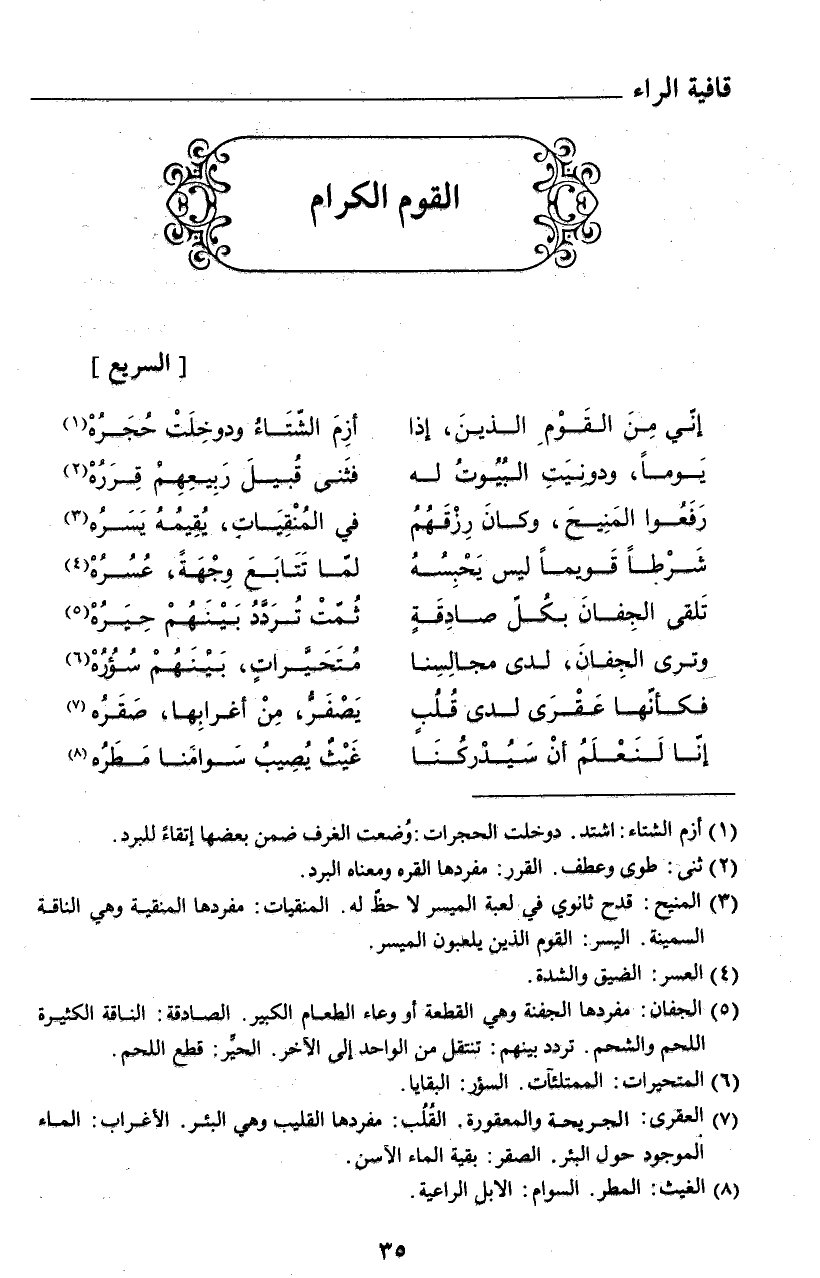 قافية الراء
القوم الكرام
[ السريع ]
إنّي مِنَ القَوْمِ الذينَ، إذا أزِمَ الشّتَاءُ ودوخِلَتْ حُجَرُهْ(١)
يَوماً، ودونِيَتِ البُيُوتُ له فثَنى قُبيلَ رَبِيعِهِمْ قِرَرُهْ(٢)
رَفَعُوا المَنِيحَ، وكانَ رِزْقَهُمُ في المُنْقِيَاتِ، يُقِيمُهُ يَسَرُه(٣)
شَرْطاً قَويماً ليس يَحْبِسُهُ لمّا تَتَابَعَ وِجْهَةً، عُسُرُهْ(٤)
تَلقى الجِفانَ بكُلّ صادِقَةٍ ثُمّتْ تُرَدَّدُ بَيْنَهُمْ حِيَرُهْ(٥)
وترى الجِفانَ، لدى مجالِسِنا مُتَحَيَّراتٍ، بَيْنَهُمْ سُؤرُهْ(٦)
فكأنّها عَقْرَى لدى قُلُبٍ يَصْفَرُّ، مِنْ أغرابِها، صَقَرُه (٧)
إنّا لَنَعْلَمُ أنْ سَيُدْرِكُنَا غَيْثٌ يُصِيبُ سَوامَنا مَطَرُه (٨)
(١) أزم الشتاء: اشتد. دوخلت الحجرات: وُضعت الغرف ضمن بعضها إتقاءً للبرد.
(٢) ثنى: طوى وعطف. القرر: مفردها القره ومعناه البرد.
(٣) المنيح: قدح ثانوي في لعبة الميسر لا حظّ له. المنقيات: مفردها المنقية وهي الناقة
السمينة. اليسر: القوم الذين يلعبون الميسر.
(٤) العسر: الضيق والشدة.
(٥) الجفان: مفردها الجفنة وهي القطعة أو وعاء الطعام الكبير. الصادقة: الناقة الكثيرة
اللحم والشحم. تردد بينهم: تنتقل من الواحد إلى الآخر. الحيِّر: قطع اللحم.
(٦) المتحيرات: الممتلئآت. السؤر: البقايا.
(٧) العقرى: الجريحة والمعقورة. القُلُب: مفردها القليب وهي البئر. الأغراب: الماء
الموجود حول البئر. الصقر: بقية الماء الآسن.
(٨) الغيث: المطر. السوام: الابل الراعية.
٣٥